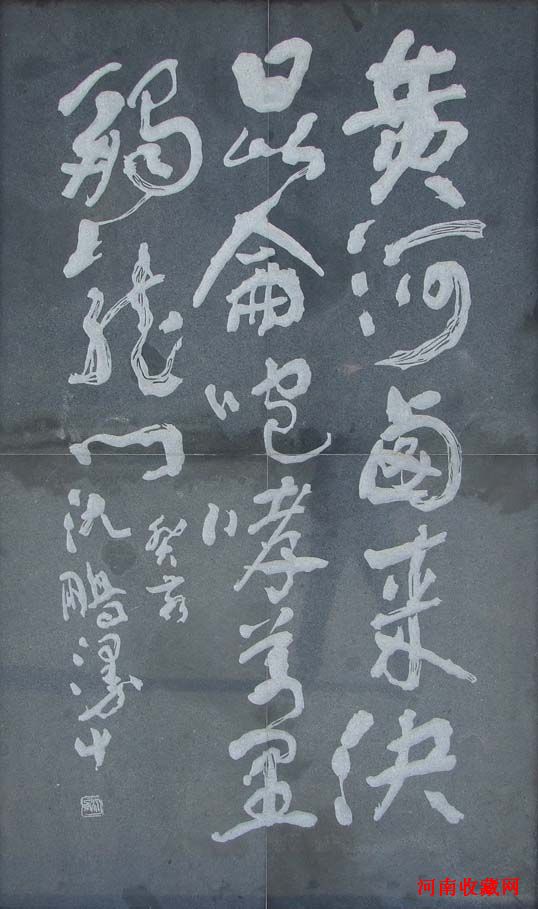 黄河西来决
昆仑咆哮万里
触龙门
癸亥
沈鹏
河南收藏网